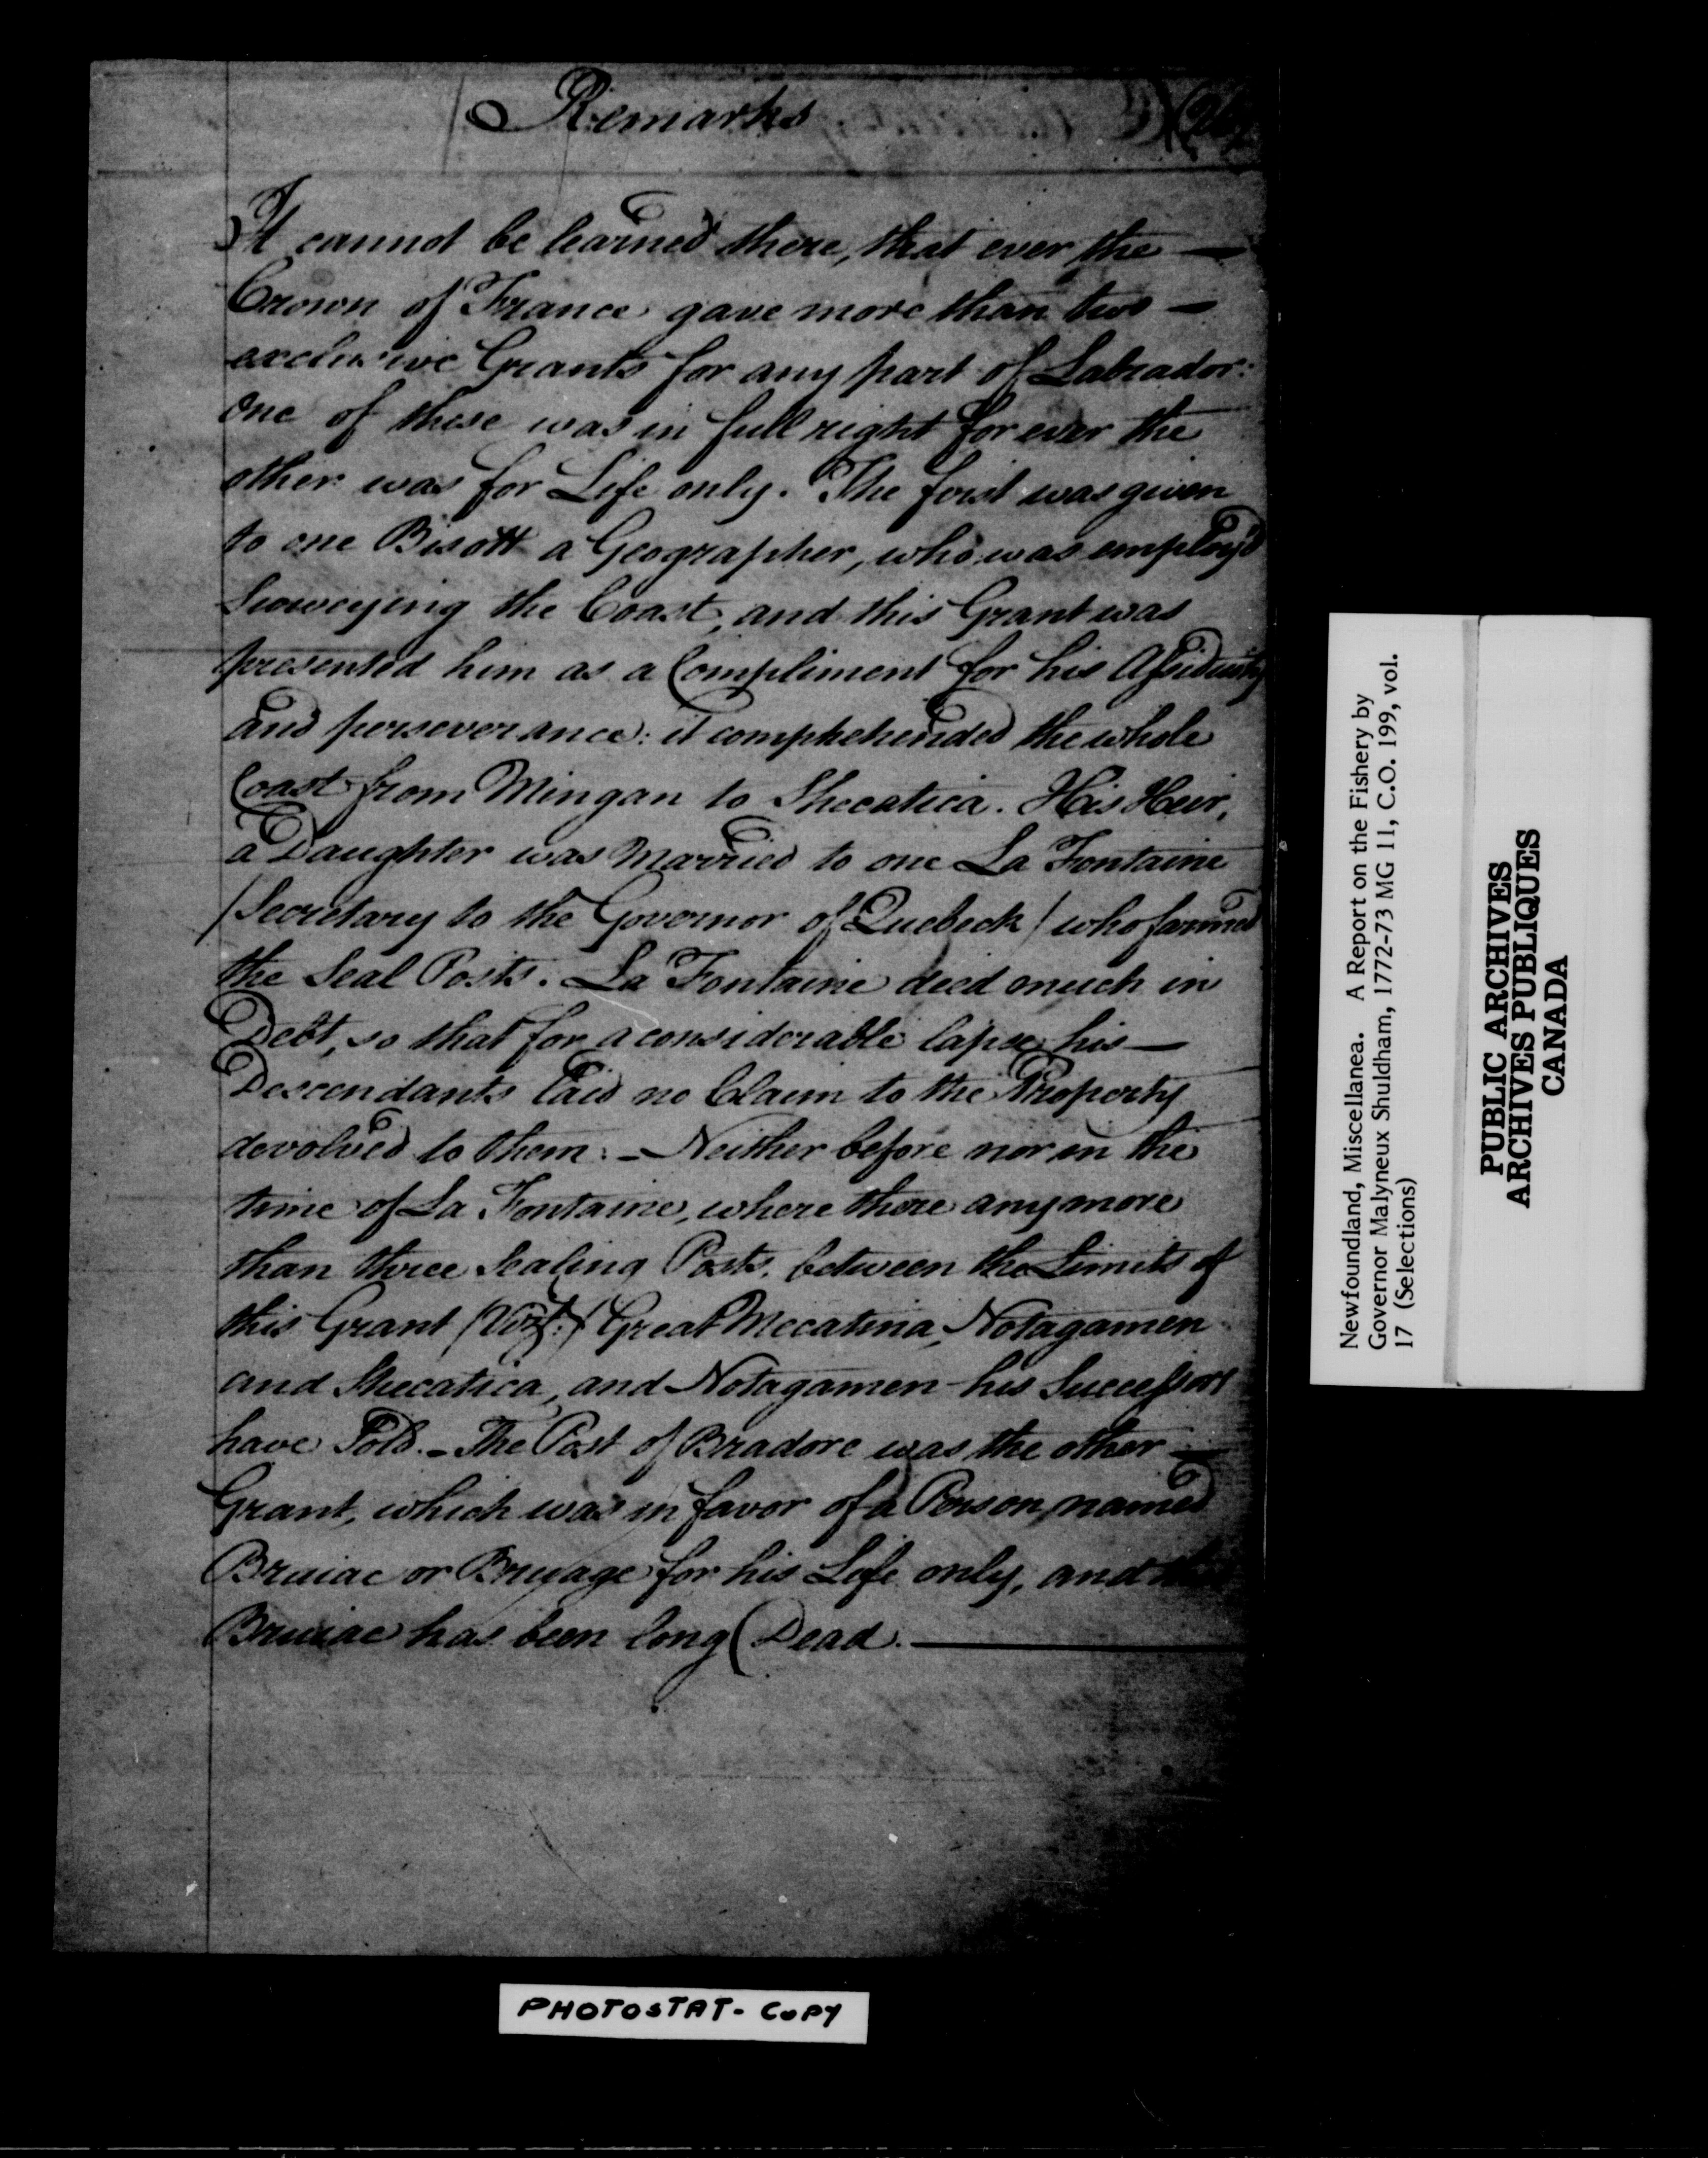 Remarks
It cannot be learned there, that ever the —
Crown of France gave more than two —
exclusive Grants for any part of Labrador:
one of these was in full right for ever the
other was for Life only. The first was given
to one Bisott a Geographer, who was employ'd
Surveying the Coast, and this Grant was
presented him as a Compliment for his Assiduity
and perseverance: it comphehended the whole
Coast from Mingan to Shecatica. His Heir,
a Daughter was Married to one La Fontaine
/Secretary to the Governor of Quebeck/ who farmed
the Seal Posts. La Fontaine died much in
Debt, so that for a considerable lapse his —
Descendants laid no Claim to the Property
devolved to them. – Neither before nor in the
time of La Fontaine, where there any more
than three Sealing Posts, between the Limits of
this Grant /Vizt:/ Great Mecatina, Notagamen
and Shecatica, and Notagamen his Successors
have Sold. – The Post of Bradore was the other —
Grant, which was in favor of a Person named
Bruiac or Bruyage for his Life only, and
Bruiac has been long Dead. —
Newfoundland, Miscellanea. A Report on the Fishery by
Governor Malyneux Shuldham, 1772-73 MG 11, C.O. 199, vol.
17 (Selections)
PUBLIC ARCHIVES
ARCHIVES PUBLIQUES
CANADA
PHOTOSTAT- COPY